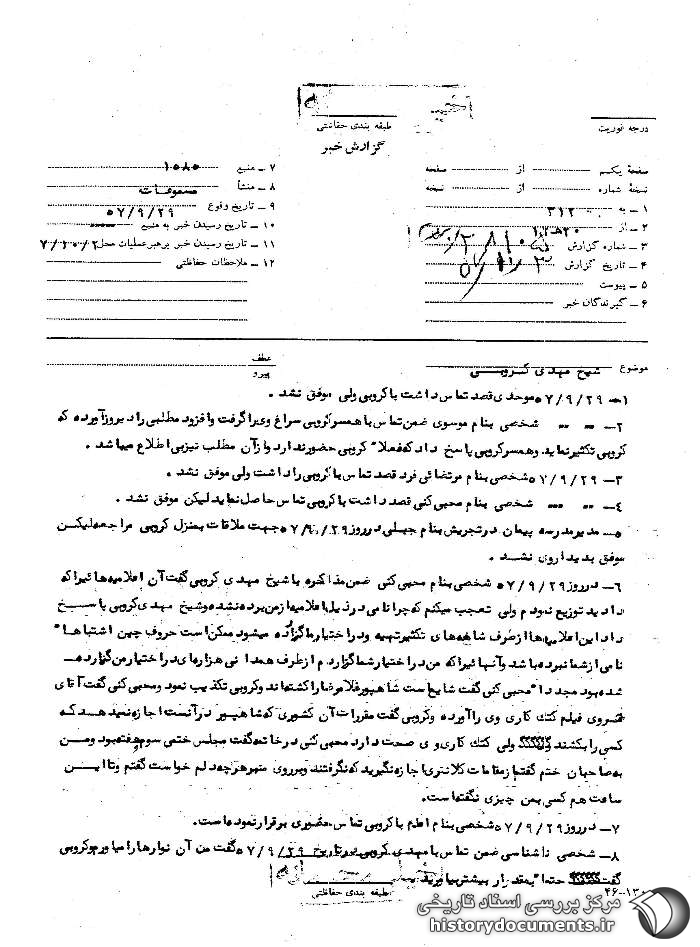 درجه فوریت
طبقه بندی حفاظتی
گزارش خبر
صفحهٔ یکم از صفحه
نسخهٔ شماره از نسخه
۱ ــ به ۳۱۲
۲ ــ از
۳ ــ شماره گزارش
۴ ــ تاریخ گزارش
۵ ــ پیوست
۶ ــ گیرندگان خبر
۷ ــ منبع ۱۰۸۵
۸ ــ منشأ مسموعات
۹ ــ تاریخ وقوع ۵۷/۹/۲۹
۱۰ ــ تاریخ رسیدن خبر به منبع
۱۱ ــ تاریخ رسیدن خبر برهبر عملیات محل
۱۲ ــ ملاحظات حفاظتی
موضوع شیخ مهدی کروبی
عطف
پیرو
۱ــ ۵۷/۹/۲۹ موحدی قصد تماس داشت با کروبی ولی موفق نشد .
۲ــ " " شخصی بنام موسوی ضمن تماس با همسر کروبی سراغ ویرا گرفت وافزود مطلبی را دیروز آورده که
کروبی تکثیر نماید. وهمسر کروبی پاسخ داد که فعلا" کروبی حضور ندارد واز آن مطلب نیز بی اطلاع میباشد .
۳ــ ۵۷/۹/۲۹ شخصی بنام مرتضائی فرد قصد تماس با کروبی را داشت ولی موفق نشد .
۴ــ " " شخصی بنام محبی کنی قصد داشت با کروبی تماس حاصل نماید لیکن موفق نشد .
۵ــ مدیر مدرسه پیمان در تجریش بنام جبلی در روز ۵۷/۹/۲۹ جهت ملاقات بمنزل کروبی مراجعه لیکن
موفق بدیدار وی نشد .
۶ــ در روز ۵۷/۹/۲۹ شخصی بنام محبی کنی ضمن مذاکره با شیخ مهدی کروبی گفت آن اعلامیه هائیرا که
دادید توزیع نمودم ولی تعجب میکنم که چرا نامی در ذیل اعلامیه از من برده نشده وشیخ مهدی کروبی پاسخ
داد این اعلامیه ها از طرف شاخه های تکثیر تهیه ودر اختیار ما گزارده میشود ممکن است حروف چین اشتباها"
نامی از شما نبرده باشد وآنهائیرا که من در اختیار شما گزاردم از طرف همدانی هزارهای در اختیار من گزارده
شده بود مجددا" محبی کنی گفت شایع است شاهپور غلامرضا را کشته اند وکروبی تکذیب نمود ومحبی کنی گفت آقای
خسروی فیلم کتک کاری وی را آورده وکروبی گفت مقررات آن کشوری که شاهپور در آنست اجازه نمیدهد که
کسی را بکشند ولی کتک کاری وی صحت دارد محبی کنی در خاتمه گفت مجلس ختمی سوم هفته بود ومن
به صاحبان ختم گفتم از مقامات کلانتری اجازه نگیرید که نگرفتند وبر روی منبر هرچه دلم خواست گفتم وتا این
ساعت هم کسی بمن چیزی نگفته است.
۷ــ در روز ۵۷/۹/۲۹ شخصی بنام اعلم با کروبی تماس حضوری برقرار نموده است.
۸ــ شخصی ناشناسی ضمن تماس با مهدی کروبی در تاریخ ۵۷/۹/۲۹ گفت من آن نوارها را میاورم وکروبی
گفت حتما" یمقدار بیشتر بیاورید
طبقه بندی حفاظتی
۴۶-۱۳۰
مرکز بررسی اسناد تاریخی
historydocuments.ir